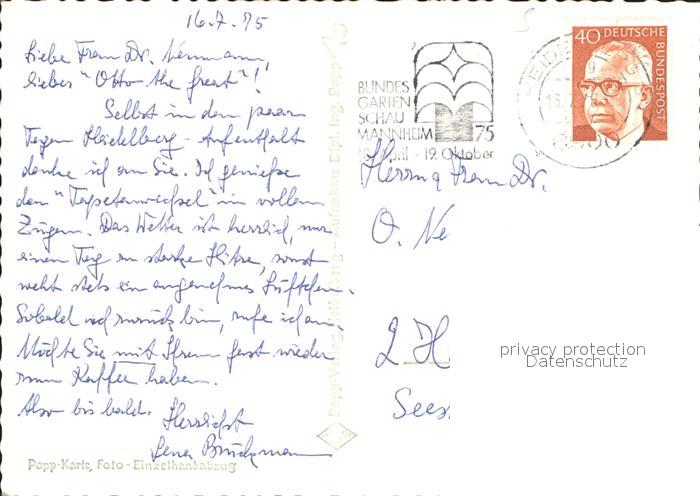 16.7.75
Liebe Frau Dr. Neumann,
lieber "Otto the great"!
Selbst in den paar
Tagen Heidelberg-Aufenthalt
denke ich an Sie. Ich genieße
den "Tapetenwechsel" in vollen
Zügen. Das Wetter ist herrlich, nur
einen Tag zu starke Hitze, sonst
weht stets ein angenehmes Lüftchen.
Sobald ich zurück bin, rufe ich an.
Möchte Sie mit Ihrem Gast wieder
zum Kaffee haben.
Also bis bald. Herzlichst
Lena Brückmann
Popp-Karte, Foto-Einzelhandabzug
Popp-Verlag, Heidelberg - Aufnahme Dipl. Ing. Popp
BUNDES
GARTEN
SCHAU
MANNHEIM 75
April - 19. Oktober
40 DEUTSCHE
BUNDESPOST
Herrn u Frau Dr.
O. Ne
2 H
Sees
privacy protection
Datenschutz